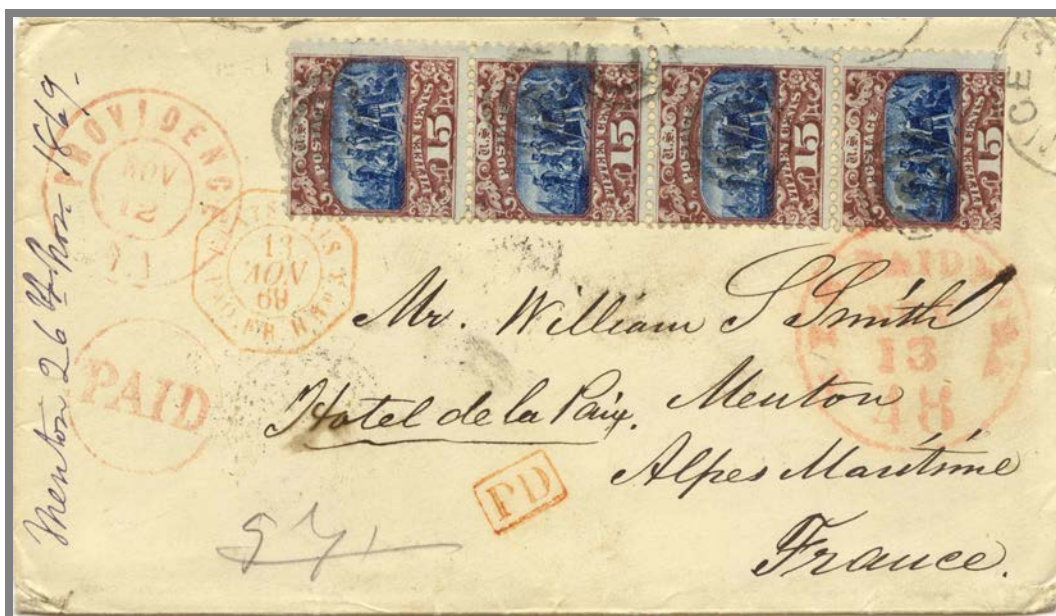 Menton 26th Nov 1869.
PROVIDENCE
NOV
12
PAID
13
NOV
69
U.S. POSTAGE
FIFTEEN CENTS
15
U.S. POSTAGE
FIFTEEN CENTS
15
U.S. POSTAGE
FIFTEEN CENTS
15
U.S. POSTAGE
FIFTEEN CENTS
15
NICE
PAID
13
48
Mr. William S Smith
Hotel de la Paix, Menton
Alpes Maritime
France.
PD